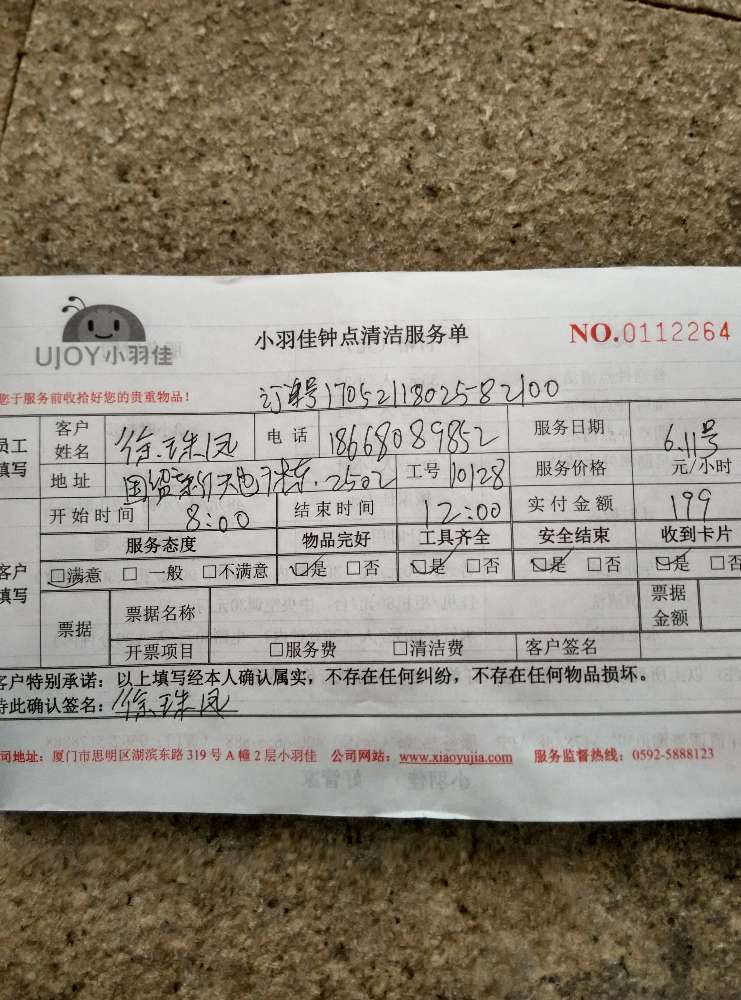 UJOY小羽佳
小羽佳钟点清洁服务单
NO.0112264
您于服务前收拾好您的贵重物品!
订单号1705211802582100
员工填写
客户姓名 徐珠凤 电话 18668089852 服务日期 6.11号
地址 2502 工号 10128 服务价格 元/小时
开始时间 8:00 结束时间 12:00 实付金额 199
客户填写
服务态度 物品完好 工具齐全 安全结束 收到卡片
□满意 □一般 □不满意 □是 □否 □是 □否 □是 □否 □是 □否
票据 票据名称 票据金额
开票项目 □服务费 □清洁费 客户签名
客户特别承诺：以上填写经本人确认属实，不存在任何纠纷，不存在任何物品损坏。
特此确认签名：徐珠凤
司地址：厦门市思明区湖滨东路 319 号 A 幢 2 层小羽佳 公司网站：www.xiaoyujia.com 服务监督热线：0592-5888123